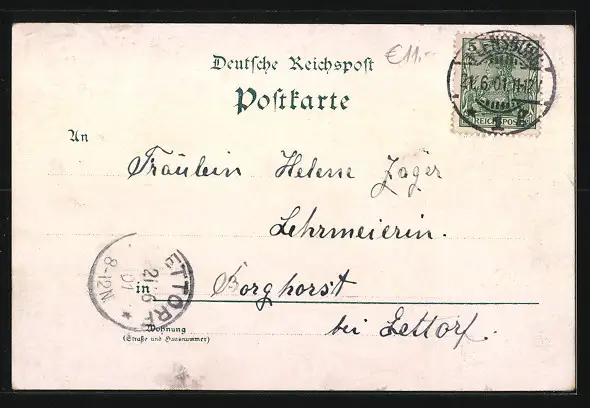 €11.-
Deutsche Reichspost
Postkarte
5
FLENSBURG
21.6.01.11-12V.
REICHSPOST
An
Fräulein Helene Jäger
Lehrmeierin.
in Borghorst
bei Gettorf.
Wohnung
(Straße und Hausnummer)
GETTORF
21 6
01
8-12N